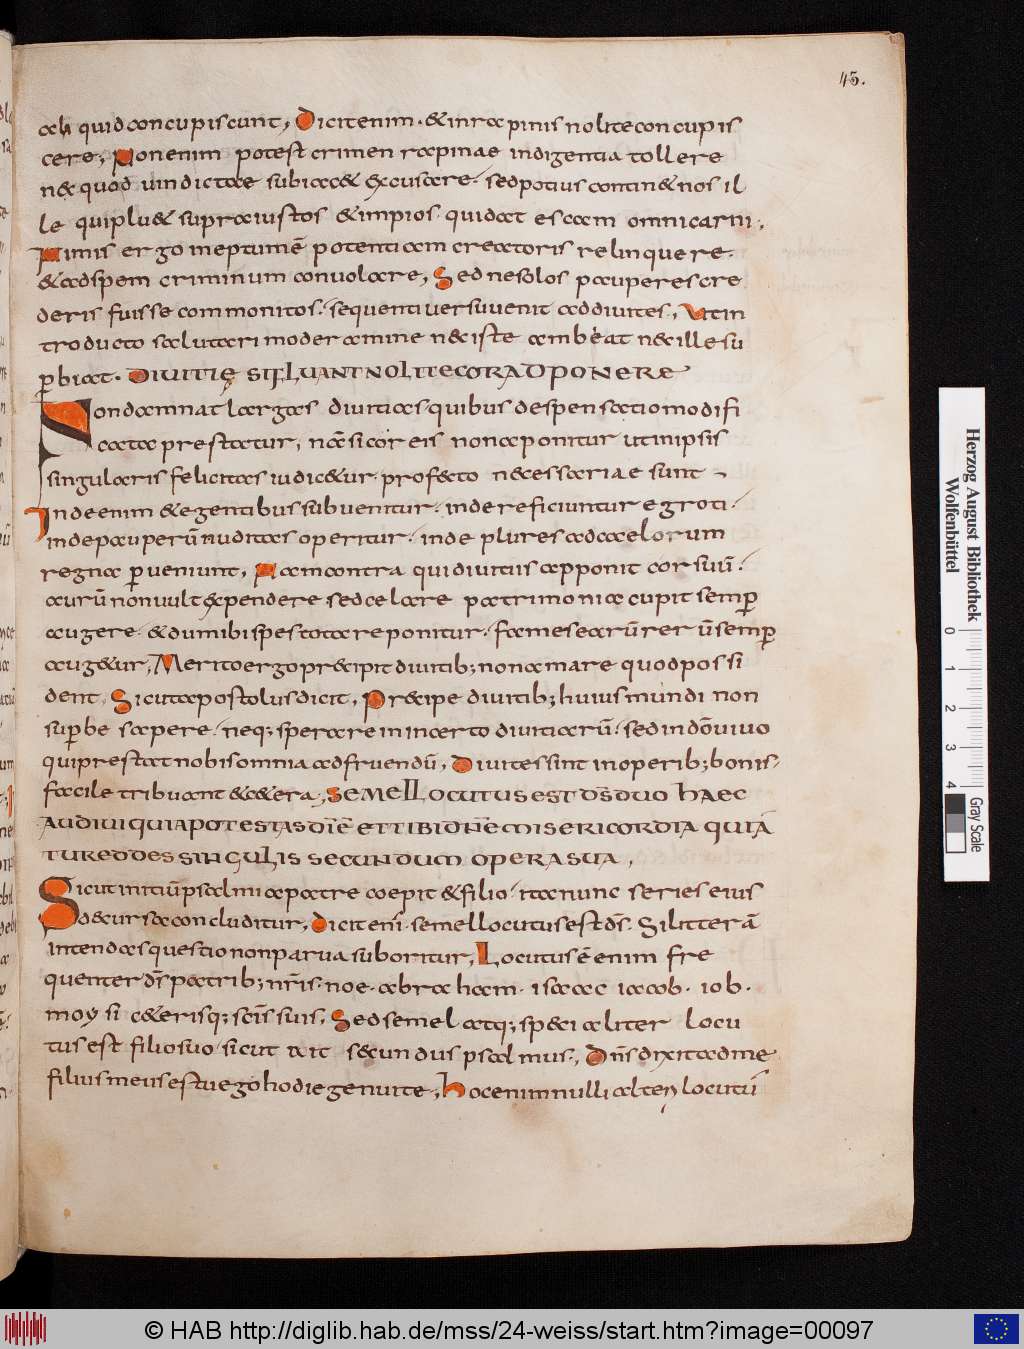 45.
ali quid concupiscunt, Dicit enim · & in rapinis nolite concupis
cere, Non enim potest crimen rapinae indigentia tollere
nec quod uindictae subiac& excusare · sed potius contin& nos il
le qui plu& supra iustos & impios · qui dat escam omni carni,
Nimis ergo ineptum ē potentiam creatoris relinquere ·
& ad spem criminum conuolare, Sed ne solos pauperes cre
deris fuisse commonitos · sequenti uersu uenit ad diuites, ut in
troducto salutari moderamine nec iste ambeat nec ille su
ꝑbiat · DIUITIE SI FLUANT NOLITE COR ADPONERE
Non damnat largas diuitias quibus dispensatio modifi
cata prestatur, nā si cor eis non aponitur ut in ipsis
singularis felicitas iudic&ur · profecto necessariae sunt
Inde enim & egentibus subuenitur · inde reficiuntur egroti ·
inde pauperū nuditas operitur · inde plures ad caelorum
regna ꝑueniunt, Nam contra qui diuitiis apponit cor suū ·
aurū non uult expendere sed celare patrimonia cupit semꝑ
augere · & dum ibi spes tota reponitur · fames earū rerū semꝑ
aug&ur, Merito ergo precipit diuitib; non amare quod possi
dent, Sicut apostolus dicit, Precipe diuitib; huius mundi non
suꝑbe sapere · neq; sperare in incerto diuitiarū · sed in dō uiuo
qui prestat nobis omnia ad fruendū, Diuites sint in operib; bonis ·
facile tribuant & c&era, SEMEL LOCUTUS EST DS̄ DUO HAEC
AUDIUI QUIA POTESTAS DĪ Ē ET TIBI DN̄E MISERICORDIA QUIA
TU REDDES SINGULIS SECUNDUM OPERA SUA,
Sicut initiū psalmi a patre coepit & filio · ita nunc series eius
adcursa concluditur, dicit enī · semel locutus est ds̄ · Si litterā
intendas questio non parua suboritur, Locutus ē enim fre
quenter ds̄ patrib; nr̄is · noe · abraham · isaac iacob · iob ·
moysi c&erisq; scīs suis, Sed semel atq; specialiter locu
tus est filio suo sicut ait secundus psalmus, Dn̄s dixit ad me
filius meus es tu ego hodie genui te, hoc enim nulli alteri locutū
Herzog August Bibliothek
Wolfenbüttel
0 1 2 3 4
Gray Scale
© HAB http://diglib.hab.de/mss/24-weiss/start.htm?image=00097